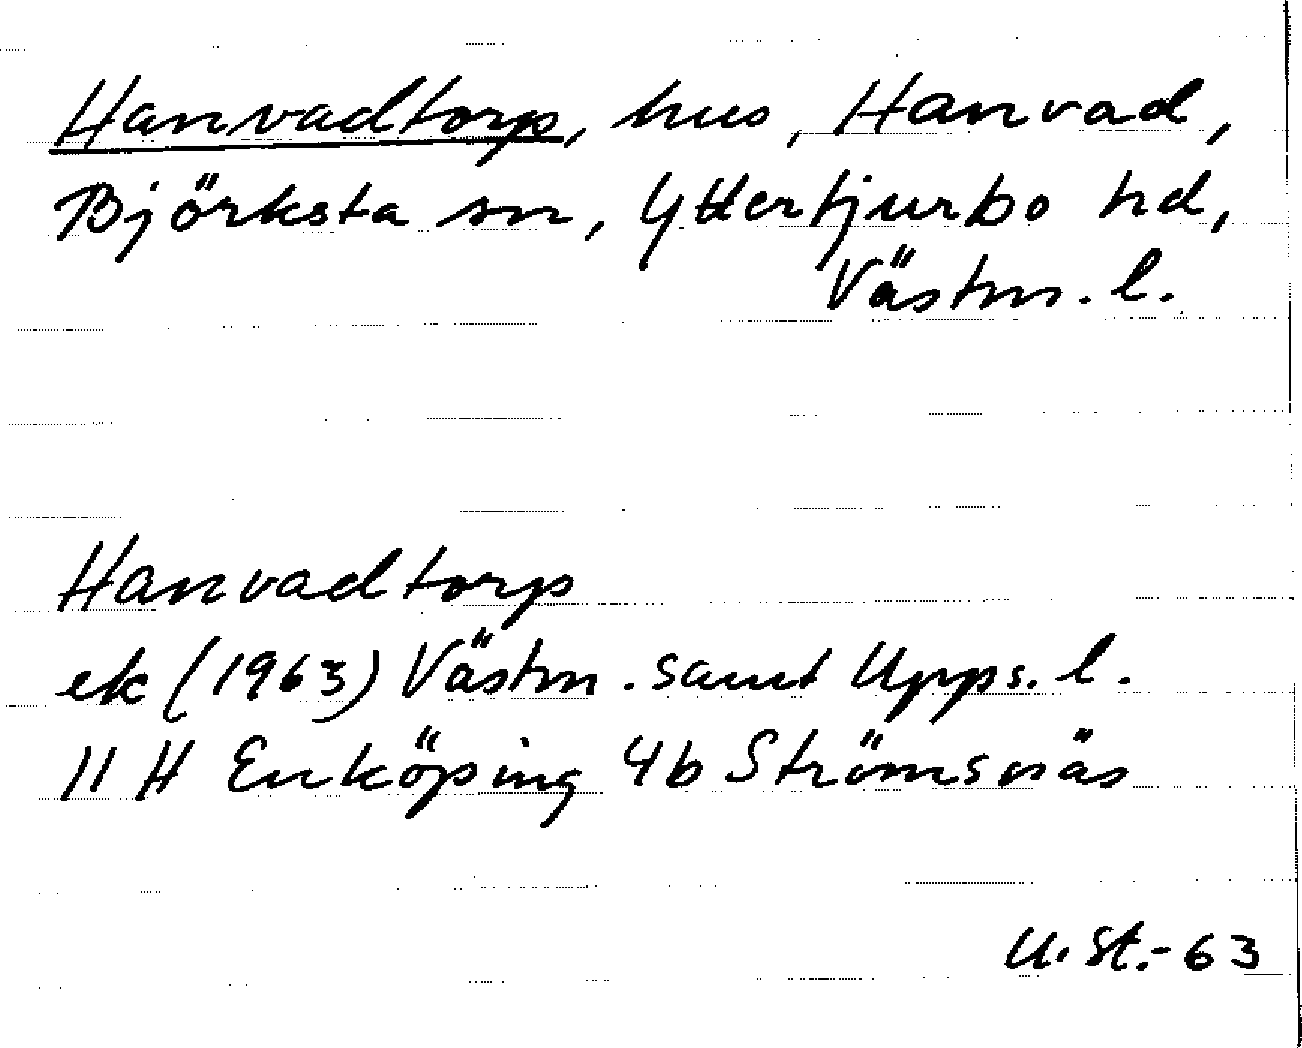 Hanvadtorp, hus, Hanvad,
Björksta sn, Yttertjurbo hd,
Västm. l.
Hanvadtorp
ek (1963) Västm. samt Upps. l.
11 H Enköping 4b Strömsnäs
U. St.-63